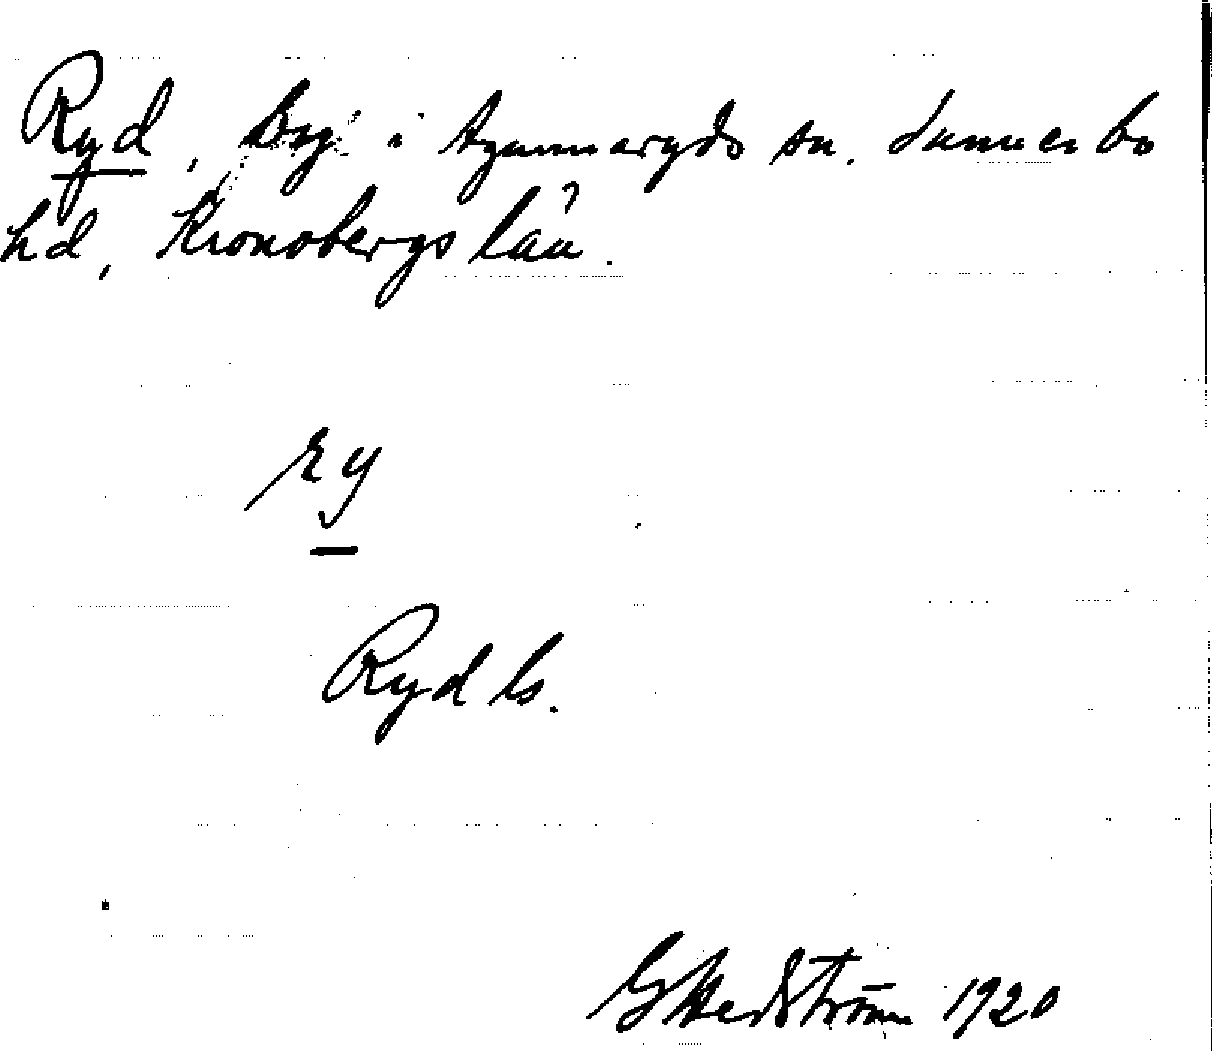 Ryd, By i Agunnaryds sn. Sunnerbo
hd, Kronobergs län.
ry
Ryd ls.
G Hedström 1920